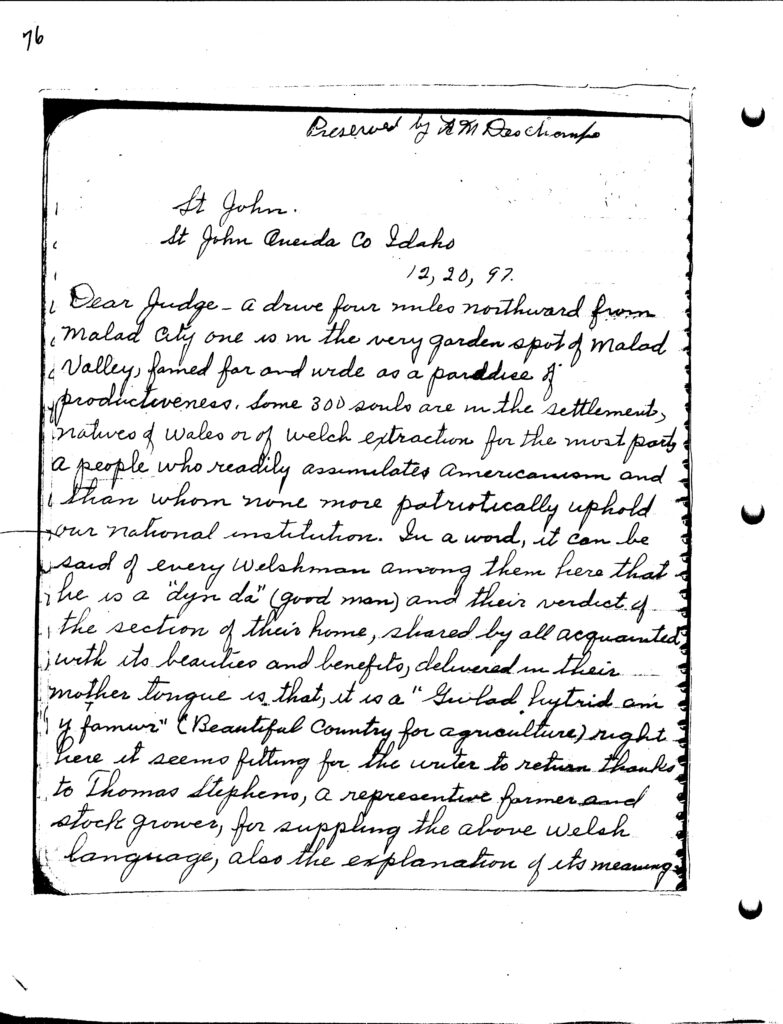 76
Preserved by A M Deschamps
St John.
St John Oneida Co Idaho
12, 20, 97.
Dear Judge - a drive four miles northward from
Malad City one is in the very garden spot of Malad
Valley, famed far and wide as a paradise of
productiveness. Some 300 souls are in the settlement,
natives of Wales or of welch extraction for the most part,
a people who readily assimilates americanism and
than whom none more patriotically uphold
our national institution. In a word, it can be
said of every Welshman among them here that
he is a "dyn da" (good man) and their verdict of
the section of their home, shared by all acquainted
with its beauties and benefits, delivered in their
mother tongue is that, it is a "Gwlad hytrid am
y famwr" (Beautiful Country for agriculture) right
here it seems fitting for the writer to return thanks
to Thomas Stephens, a representive farmer and
stock grower, for suppling the above welsh
language, also the explanation of its meaning.